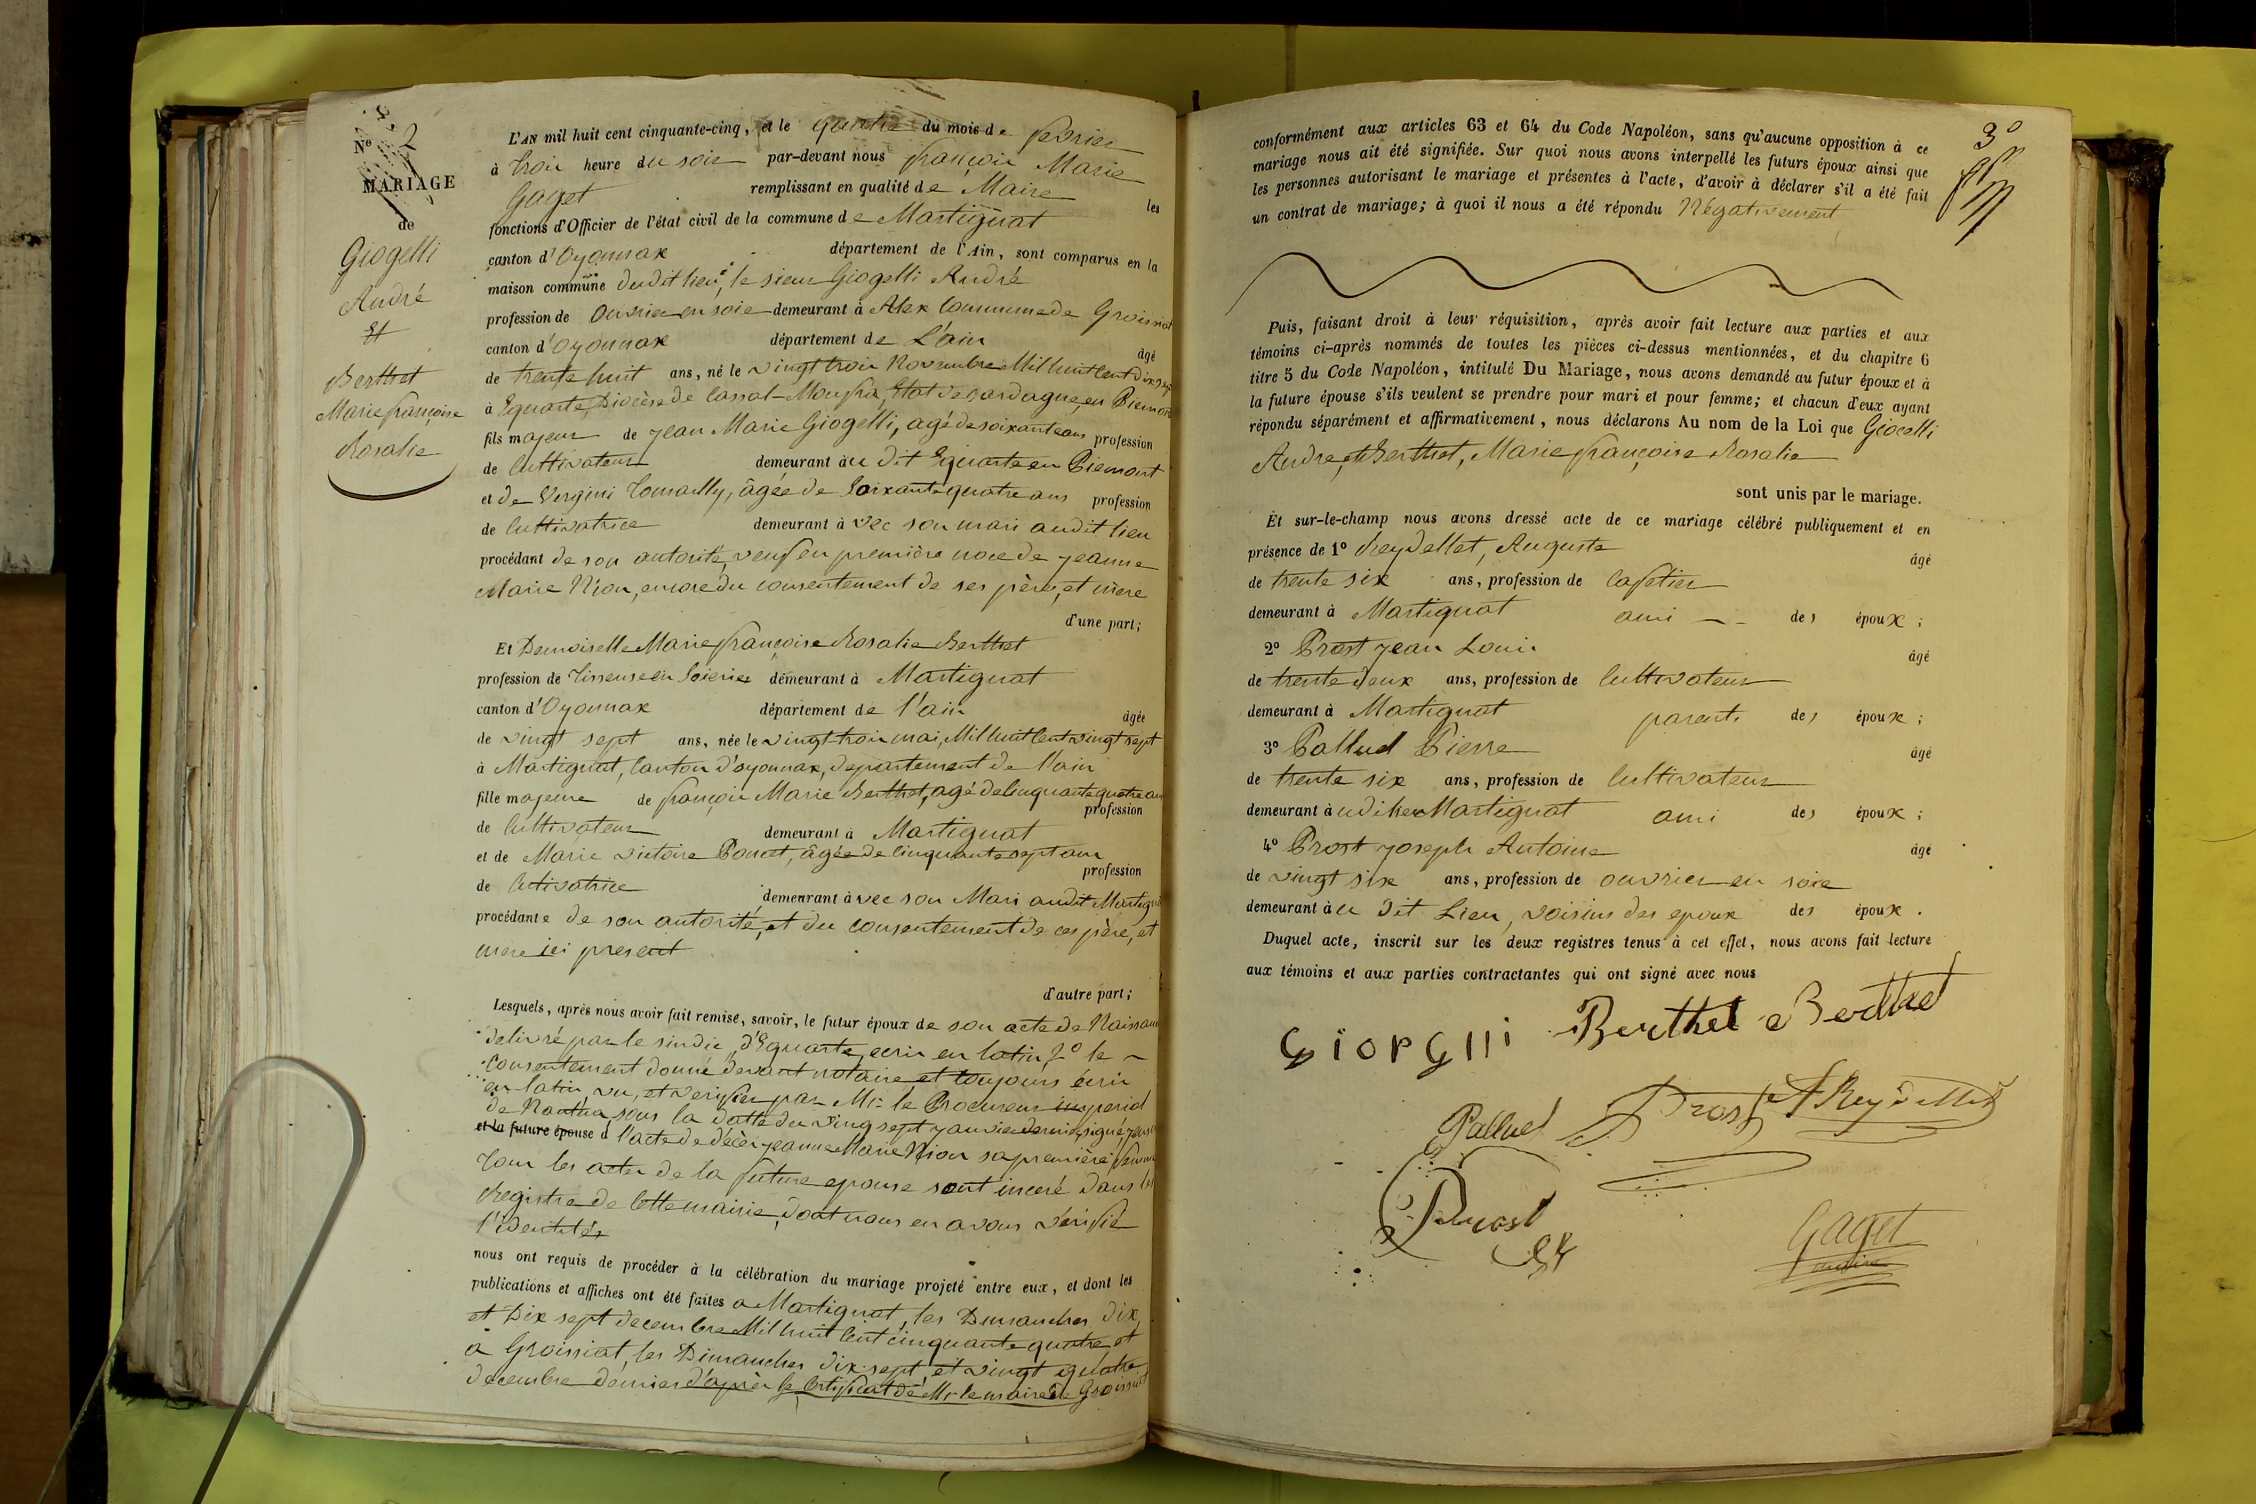 Nº 2
MARIAGE
de
Giogelli
André
Et
Berthet
Marie françoise
Rosalie
L'AN mil huit cent cinquante-cinq, et le du mois de fevrier
à trois heure du soir par-devant nous françois Marie
Gaget remplissant en qualité de Maire les
fonctions d'Officier de l'état civil de la commune de Martignat
canton d'Oyonnax département de l'Ain, sont comparus en la
maison commune dudit lieu, le sieur Giogelli André
profession de ouvrier en soie demeurant à Alex Commune de Groissiat
canton d'oyonnax département de L'ain âgé
de trente huit ans, né le vingt trois Novembre Mil huit Cent dix sept
à Equarte, Diocèse de Cassal-Monfra, Etat de sardagne, en Piemont
fils majeur de jean Marie Giogelli, agé de soixante ans profession
de Cultivateur demeurant àu dit Equarte en Piemont
et de Vergini Tomailly, âgée de Soixante quatre ans profession
de Cultivatrice demeurant à vec son mari audit lieu
procédant de son autorité, veuf en première noce de jeanne
Marie Nion, encore du consentement de ses père, et mère
d'une part;
Et Demoiselle Marie françoise Rosalie Berthet
profession de Tisseuse en Soierie demeurant à Martignat
canton d'Oyonnax département de l'ain âgée
de vingt sept ans, née le vingt-trois mai, Mil huit Cent vingt sept
à Martignat, Canton d'oyonnax, departement de l'ain
fille majeure de françois Marie Berthet, agé de Cinquante quatre ans
profession
de Cultivateur demeurant à Martignat
et de Marie victoire Poncet, âgée de Cinquante sept ans
profession
de Cutivatrice demeurant à vec son Mari audit Martignat
procédante de son autorité, et du consentement de ces père, et
mere ici present
d'autre part;
Lesquels, après nous avoir fait remise, savoir, le futur époux de son acte de Naissance
delivré par le sindic d'Equarte, ecris en latin, 2º le
Consentement donné devant notaire, et toujours écris
en latin vu, et verifier par Mr le Procureur imperial
de Nantua, sous la datte du vingt sept janvier dernier, signé
et la future épouse d l'acte de décès jeanne Marie Nion sa première femme
Tous les actes de la future epouse sont inceré dans les
Registre de Cette mairie, dont nous en avons vérifié
l'identités
nous ont requis de procéder à la célébration du mariage projeté entre eux, et dont les
publications et affiches ont été faites a Martignat, les Dimanches dix,
et Dix sept decembre Mil huit Cent cinquante quatre, et
à Groissiat, les Dimanches dix-sept, et vingt quatre
decembre dernier d'après le Certificat de Mr le maire de Groissiat
3º
conformément aux articles 63 et 64 du Code Napoléon, sans qu'aucune opposition à ce
mariage nous ait été signifiée. Sur quoi nous avons interpellé les futurs époux ainsi que
les personnes autorisant le mariage et présentes à l'acte, d'avoir à déclarer s'il a été fait
un contrat de mariage; à quoi il nous a été répondu Négativement
Puis, faisant droit à leur réquisition, après avoir fait lecture aux parties et aux
témoins ci-après nommés de toutes les pièces ci-dessus mentionnées, et du chapitre 6
titre 5 du Code Napoléon, intitulé Du Mariage, nous avons demandé au futur époux et à
la future épouse s'ils veulent se prendre pour mari et pour femme; et chacun d'eux ayant
répondu séparément et affirmativement, nous déclarons Au nom de la Loi que Giocelli
Andre, et Berthet, Marie françoise Rosalie
sont unis par le mariage.
Et sur-le-champ nous avons dressé acte de ce mariage célébré publiquement et en
présence de 1º Reydellet, Auguste âgé
de trente six ans, profession de Cafetier
demeurant à Martignat ami des époux;
2º Prost jean Louis âgé
de trente deux ans, profession de Cultivateur
demeurant à Martignat parent des époux;
3º Pallud Pierre âgé
de trente six ans, profession de Cultivateur
demeurant à udi lieu Martignat ami des époux;
4º Prost joseph Antoine âgé
de vingt six ans, profession de ouvrier en soie
demeurant à u dit Lieu, voisins des epoux des époux.
Duquel acte, inscrit sur les deux registres tenus à cet effet, nous avons fait lecture
aux témoins et aux parties contractantes qui ont signé avec nous
GiorGlli Berthet Berthet
Pallud Prost A Reydellet
Prost
Gaget
maire